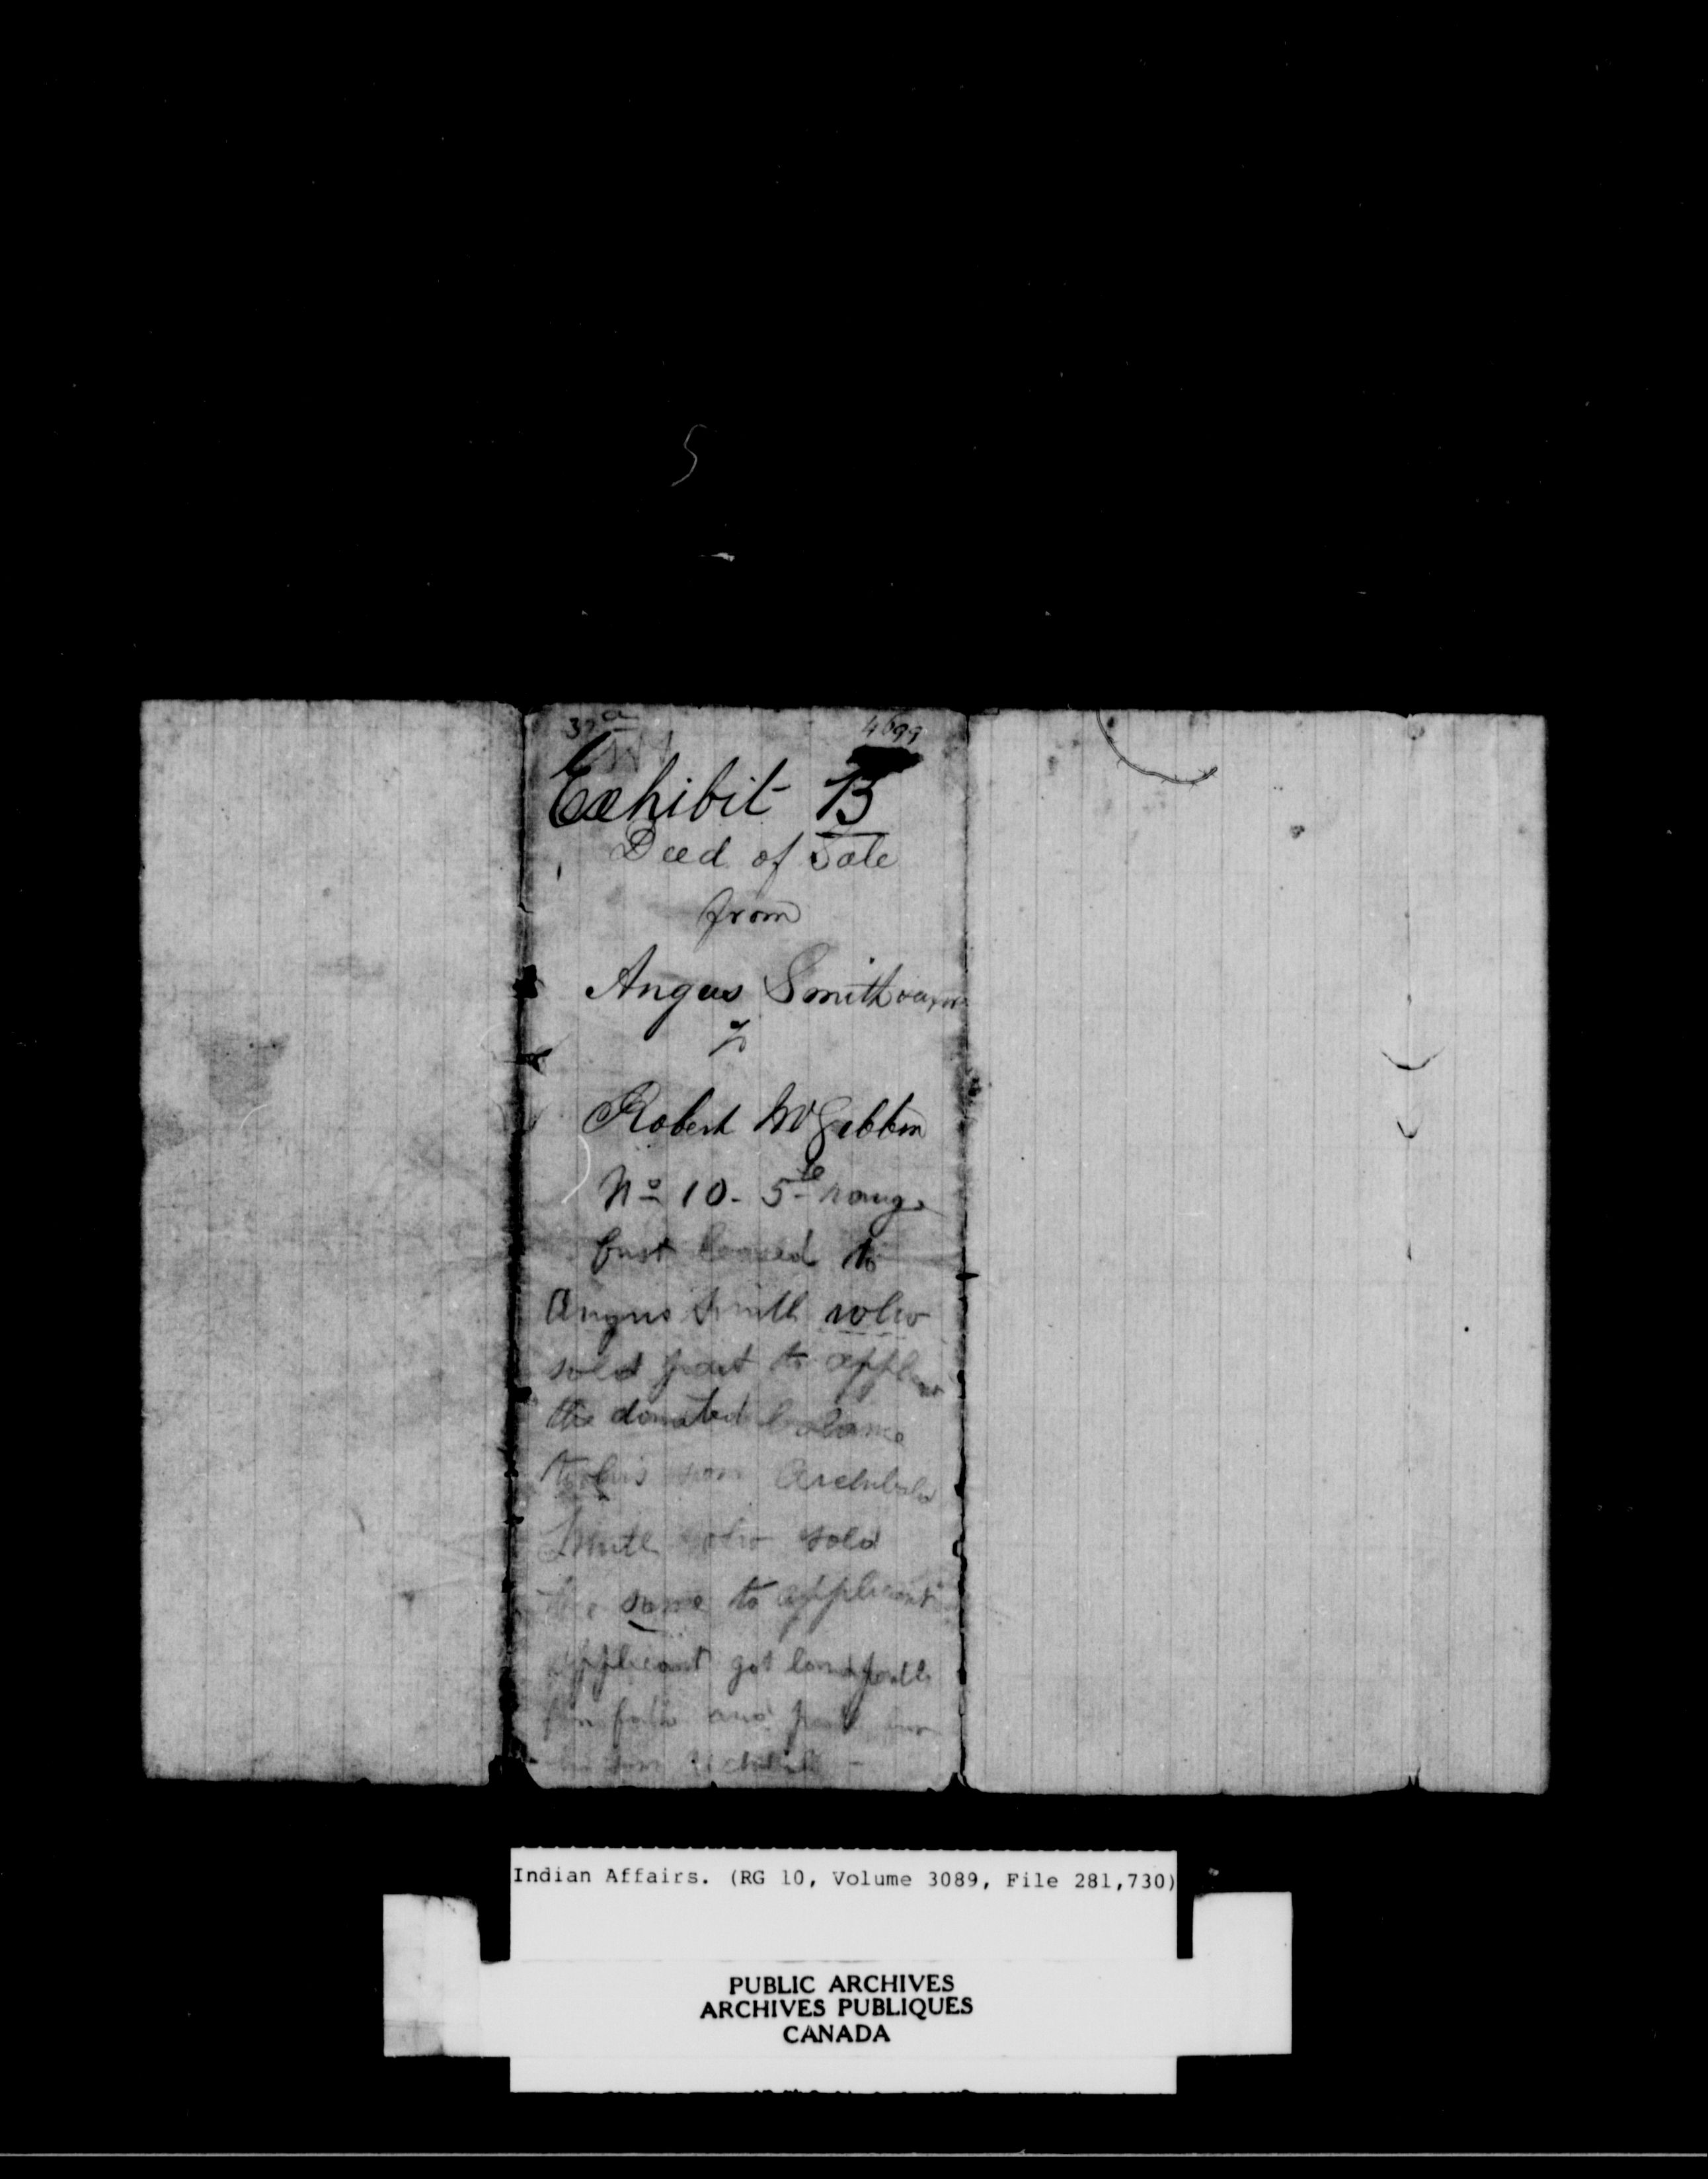 5
37a 4699
Exhibit B
Deed of Sale
from
Angus Smith
to
Robert McGibbon
No 10 - 5th range
first leased to
Angus Smith who
sold part to
the donated balance
to his son Archibald
Smith who sold
the same to applicant
applicant got land partly
from father and part from
his son
Indian Affairs. (RG 10, Volume 3089, File 281,730)
PUBLIC ARCHIVES
ARCHIVES PUBLIQUES
CANADA